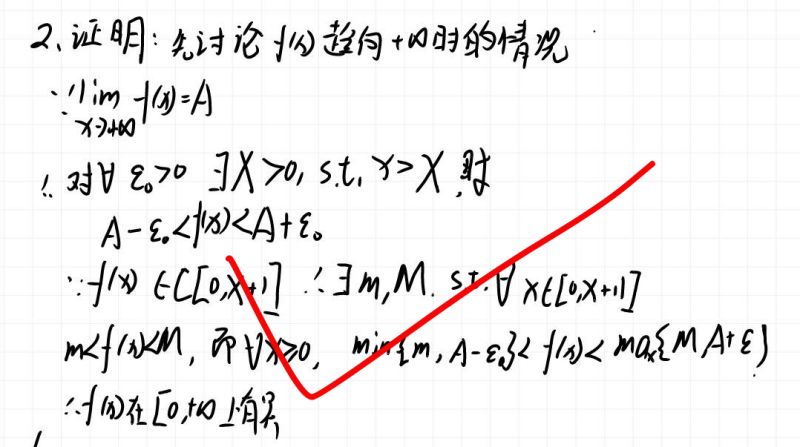 2、证明：先讨论 f(x) 趋向 +∞ 时的情况
∵ lim f(x)=A
x→+∞
∴ 对∀ ε₀>0 ∃X>0, s.t. x>X 时
A-ε₀<f(x)<A+ε₀
∵ f(x) ∈C[0,X+1] ∴∃m,M. s.t. ∀ x∈[0,X+1]
m<f(x)<M, 即∀x≥0, min{m, A-ε₀}< f(x)< max{M A+ε}
∴f(x)在[0,+∞)上有界